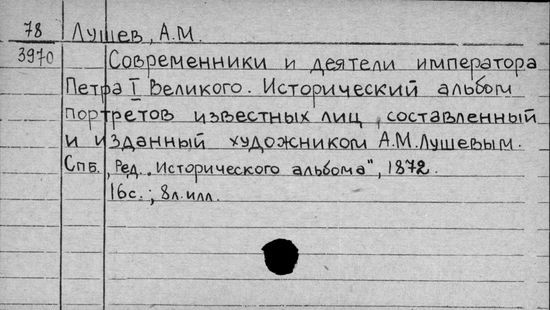 78 Лушев, А.М.
3970 Современники и деятели императора
Петра I Великого. Исторический альбом
портретов известных лиц, составленный
и изданный художником А.М.Лушевым.
Спб., Ред. „Исторического альбома", 1872.
16с.; 8л.илл.